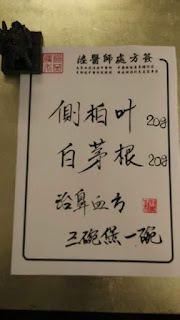 陸醫師處方荟
側柏叶 20g
白茅根 20g
治鼻血方
三碗煲一碗